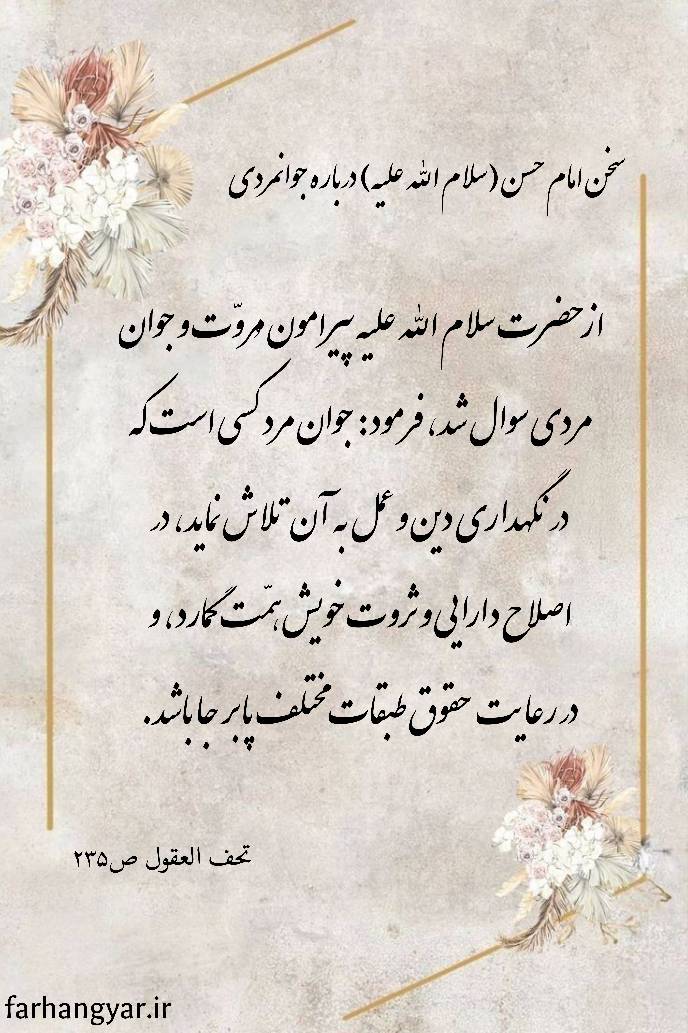 سخن امام حسن (سلام الله علیه) درباره جوانمردی
از حضرت سلام الله علیه پیرامون مروّت و جوان
مردی سوال شد، فرمود: جوان مرد کسی است که
در نگهداری دین و عمل به آن تلاش نماید، در
اصلاح دارایی و ثروت خویش همّت گمارد، و
در رعایت حقوق طبقات مختلف پابرجا باشد.
تحف العقول ص۲۳۵
farhangyar.ir